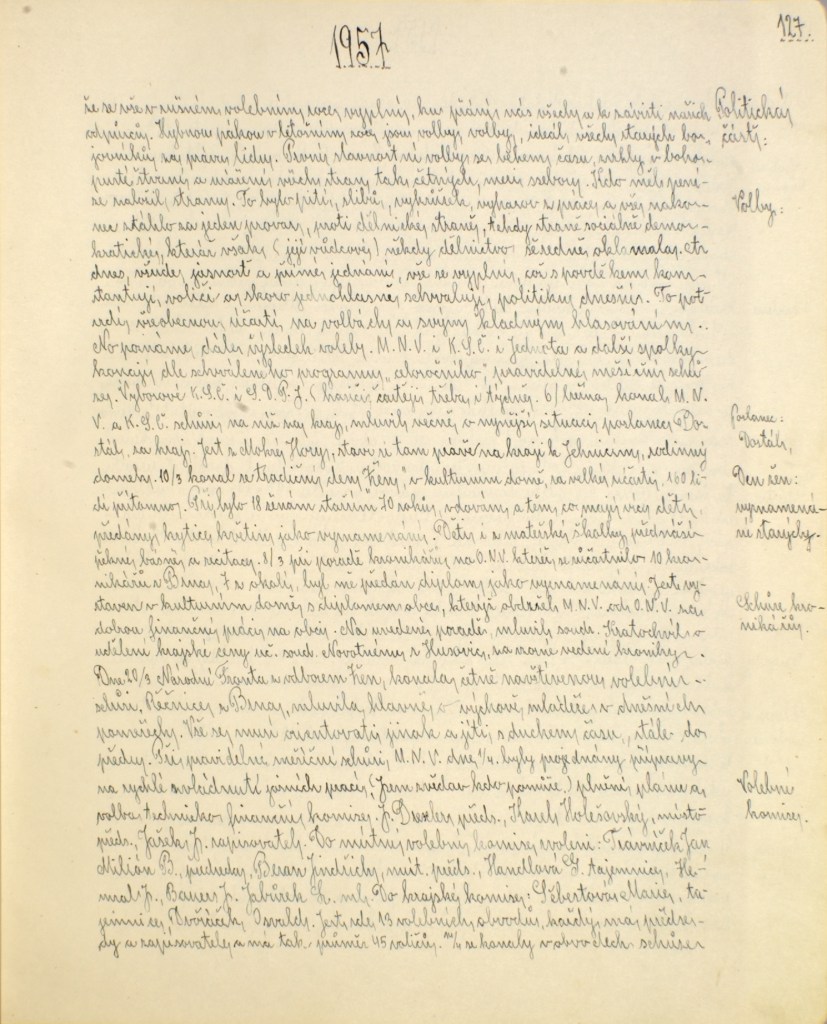 127.
1957
že se vše v rušném volebním roce vyplní, ku přání nás všech a k závisti našich
Politická
odpůrců. Hybnou pákou v letošním roce jsou volby, volby, ideál všech starých bo-
část:
jovníků za práva lidu. První slavnostní volby se během času, zvrhly v boho-
pusté štvaní a urážení všech stran tak četných, mezi sebou. Kdo měl pení-
ze naložil stranu. To bylo pití, slibů, vyhrůžek, vyhazov z práce a vše nako-
Volby:
nec stáhlo za jeden provaz, proti dělnické straně, tehdy straně sociálně demo-
kratické, kteráž však (její vůdcové) někdy dělnictvo šeredně oklamala. A
dnes, všude, jasnost a přímé jednání, vše se vyplní, což s povděkem kon-
stantují, voliči a skoro jednohlasně schvalují, politiku dnešní. To pot-
vrdí všeobecnou účastí, na volbách a svým kladným hlasováním ..
No poznáme, dále, výsledek voleb. M.N.V. i K.S.Č. i Jednota a další spolky
konají, dle schváleného programu "celoročního", pravidelné, měsíční schů-
ze. Výborové K.S.Č. i S.D.P.J. (hasiči) častěji třeba i týdně. 6/ března, konal M.N.
V. a K.S.Č. schůzi na níž za kraj, mluvil věcně, o nynější situaci poslanec Do-
Poslanec:
stál, za kraj. Jest z Mokré Hory, staví si tam právě na kraji k Jehnicím, rodinný
Dostál,
domek. 10/3 konal se tradiční den "Žen," v kulturním domě, za velké účasti, 160 li-
Den žen:
dí přítomno. Při bylo 18 ženám starším 70 roků, vdovám a těm, co mají více dětí,
vyznamená-
předány kytice, květin, jako vyznamenání. Děti, i z mateřské školky přednáší
ní starých.
pěkné básně, a recitace. 8/3 při poradě kronikářů, na O.N.V. které se zúčastnilo 10 kro-
nikářů z Brna, 7 z okolí, byl mně předán diplom, jako vyznamenání. Jest vy-
staven v kulturním domě, s diplomem obce, kterýž obdržel M.N.V. od O.N.V. za
Schůze kro-
dobrou finanční práci na obci. Na uvedené poradě, mluvil soud. Kratochvíl o
nikářů.
udělení krajské ceny uč. soud. Novotnému z Husovic, za vzorné vedení kroniky.
Dne 20/3 Národní Fronta s odborem Žen, konala, četně navštívenou, volební
schůzi. Řečnice z Brna, mluvila, hlavně, o výchově, mládeže v dnešních
poměrech. Vše se musí orientovati jinak a jíti, s duchem času, stále do
předu. Při pravidelné měsíční schůzi, M.N.V. dne 1/4. byly projednány přípravy
na rychlé zvládnutí jarních prací, (jsem zvědav kdo pomůže.) plnění plánu a
Volební
volba technicko finanční komise. J. Drexler předs., Karel Holešovský, místo
komise.
předs., Jašek J. zapisovatel. Do místní volební komise, zvoleni: Trávníček Jan
Milián B., předseda, Beran Jindřich, míst. předs., Handlová G. tajemnice, He-
mal J., Bauer J. Jabůrek L. ml. Do krajské komise: Šébertová Marie, ta-
jemnice, Dvořáček, Osvald. Jest zde 13 volebních obvodů, každý má předse-
du a zapisovatele a má tak průměr 45 voličů. se konaly v obvodech schůze